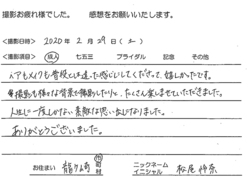 撮影お疲れ様でした。 感想をお願いいたします。
<撮影日時> 2020年 2月 29日 (土)
<撮影項目> 成人 七五三 ブライダル 記念 その他
ヘアもメイクも普段とは違った感じにしてくださって、嬉しかったです。
撮影も様々な背景で撮影したりと、たくさん楽しませていただきました。
人生に一度しかない素敵な思い出になりました。
ありがとうございました。
お住まい 龍ヶ崎 市 町村 ニックネーム イニシャル 松尾